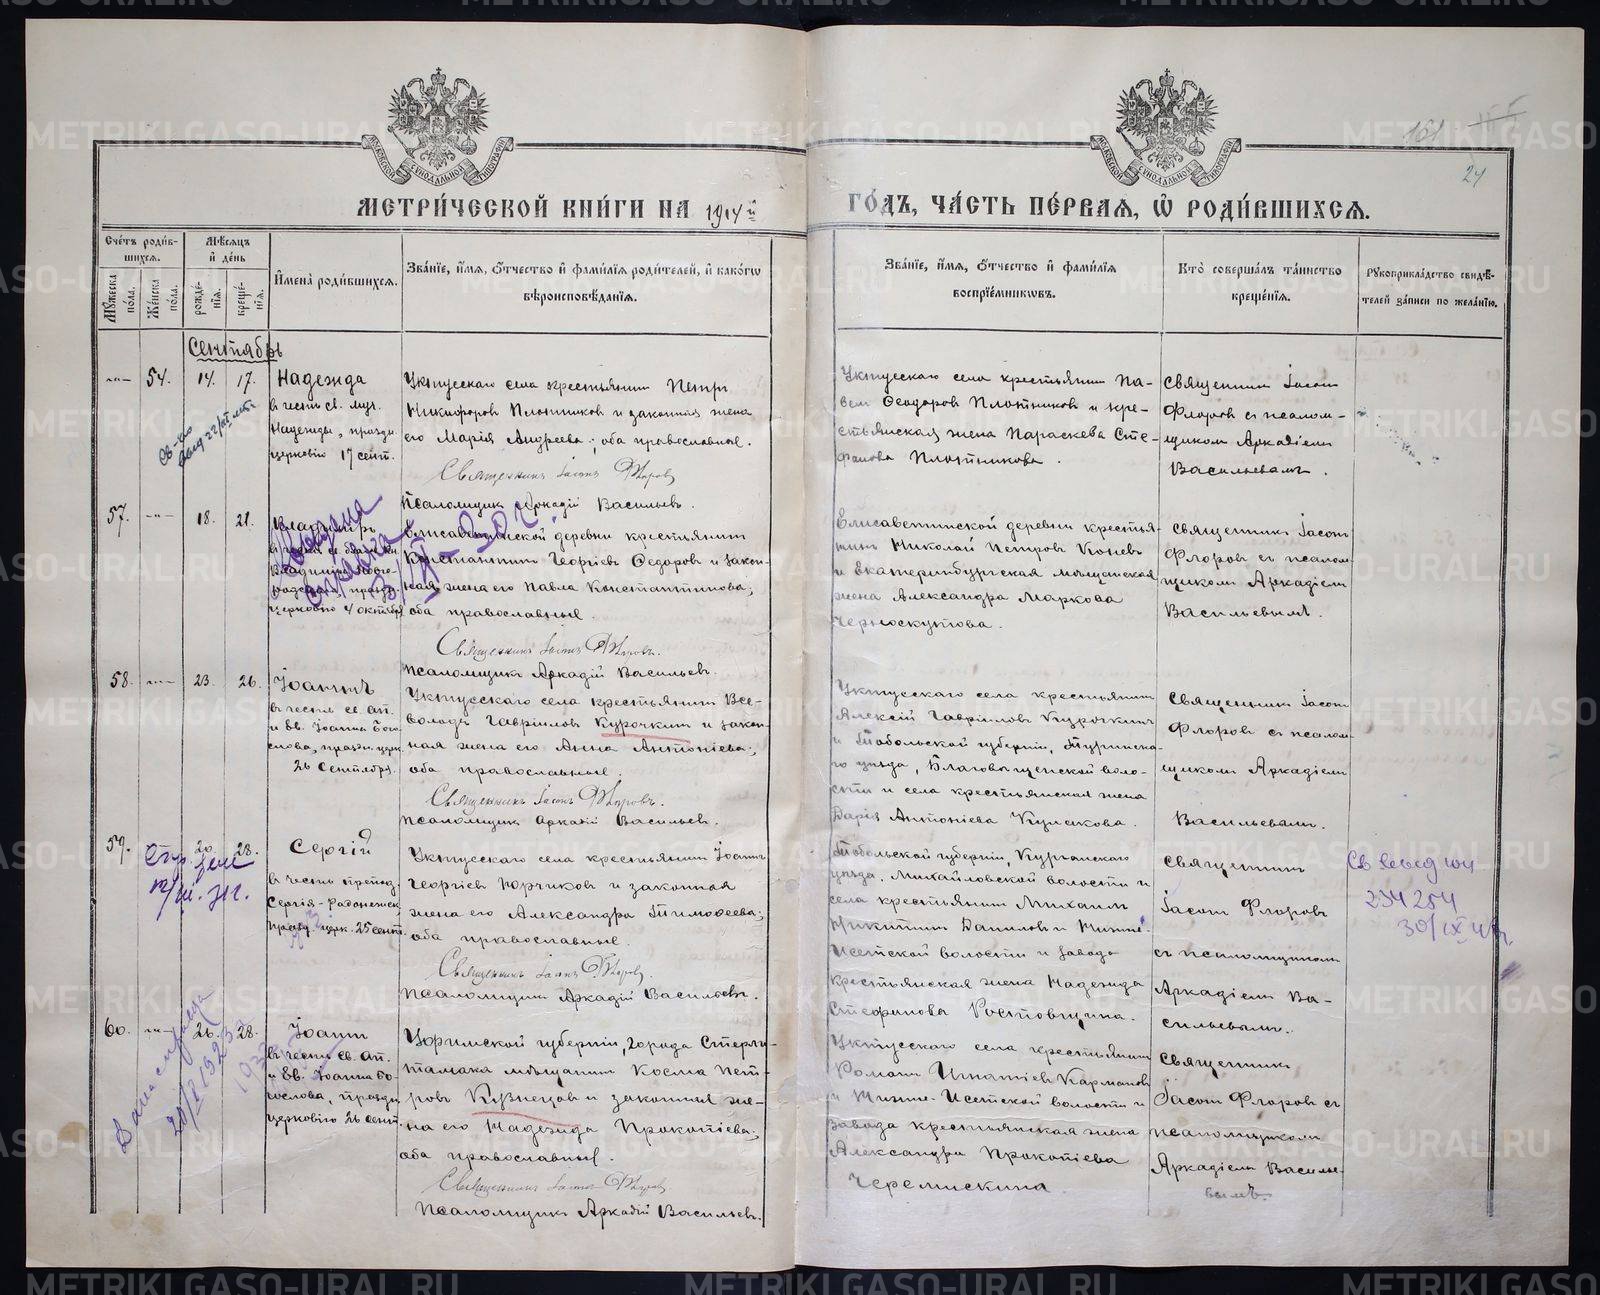 МЕТРИ́ЧЕСКОЙ КНИ́ГИ НА 1914й ГО́ДЪ, ЧА́СТЬ ПЕ́РВАѦ, Ѽ РОДИ́ВШИХСѦ.
161
24
Сче́тъ роди́в-
шихсѧ.
Мꙋ́жеска по́ла.
Же́нска по́ла.
Мѣ́сѧцъ
и҆ де́нь
рожде́-
нїѧ.
креще́-
нїѧ.
И҆мена̀ роди́вшихсѧ.
Зва́нїе, и҆́мѧ, ѻ҆́тчество и҆ фами́лїѧ роди́телей, и҆ како́гѡ
вѣроисповѣ́данїѧ.
Зва́нїе, и҆́мѧ, ѻ҆́тчество и҆ фами́лїѧ
воспрїе́мникѡвъ.
Кто̀ соверша́лъ та́инство
креще́нїѧ.
Рꙋкоприкла́дство свидѣ́-
телей за́писи по жела́нїю.
Сентябрь
54. 14. 17.
Надежда
въ честь св. муч.
Надежды, праздн.
церковію 17 сент.
Уктусскаго села крестьянинъ Петръ
Никифоровъ Плотниковъ и законная жена
его Марія Андреева; оба православные.
Священникъ Іасонъ Флоровъ
Псаломщикъ Аркадій Васильевъ.
Уктусскаго села крестьянинъ Па-
велъ Ѳеодоровъ Плотниковъ и кре-
стьянская жена Параскева Сте-
фанова Плотникова.
Священникъ Іасонъ
Флоровъ съ псалом-
щикомъ Аркадіемъ
Васильевымъ.
57. 18. 21.
Владиміръ
церковію 4 октября
Елисаветинской деревни крестьянинъ
Константинъ Георгіевъ Ѳедоровъ и закон-
ная жена его Павла Константинова;
оба православные.
Священникъ Іасонъ Флоровъ.
Псаломщикъ Аркадій Васильевъ.
Елисаветинской деревни крестья-
нинъ Николай Петровъ Коневъ
и Екатеринбургская мѣщанская
жена Александра Маркова
Черноскутова.
Священникъ Іасонъ
Флоровъ съ псалом-
щикомъ Аркадіемъ
Васильевымъ.
58. 23. 26.
Іоаннъ
въ честь св. ап.
и ев. Іоанна Бого-
слова, праздн. церк.
26 Сентября.
Уктусскаго села крестьянинъ Все-
володъ Гавриловъ Курочкинъ и закон-
ная жена его Анна Антоніева;
оба православные.
Священникъ Іасонъ Флоровъ.
Псаломщикъ Аркадій Васильевъ.
Уктусскаго села крестьянинъ
Алексій Гавриловъ Курочкинъ
и Тобольской губерніи, Туринска-
го уѣзда, Благовѣщенской воло-
сти и села крестьянская жена
Дарія Антоніева Кулакова.
Священникъ Іасонъ
Флоровъ съ псалом-
щикомъ Аркадіемъ
Васильевымъ.
59. 28.
Сергій
въ честь препод.
Сергія Радонежск.
празд. церк. 25 сент.
Уктусскаго села крестьянинъ Іоаннъ
Георгіевъ Юрчиковъ и законная
жена его Александра Тимоѳеева;
оба православные.
Священникъ Іасонъ Флоровъ.
Псаломщикъ Аркадій Васильевъ.
Тобольской губерніи, Курганскаго
уѣзда, Михайловской волости и
села крестьянинъ Михаилъ
Никитинъ Даниловъ и Нижне-
Исетской волости и завода
крестьянская жена Надежда
Стефанова Ростовщина.
Священникъ
Іасонъ Флоровъ
съ псаломщикомъ
Аркадіемъ Ва-
сильевымъ.
234254
30/IX
60. 26. 28.
Іоаннъ
въ честь св. ап.
и ев. Іоанна Бо-
гослова, праздн.
церковію 26 сент.
Уфимской губерніи, города Стерли-
тамака мѣщанинъ Косма Пет-
ровъ Кузнецовъ и законная же-
на его Надежда Прокопіева;
оба православные.
Священникъ Іасонъ Флоровъ.
Псаломщикъ Аркадій Васильевъ.
Уктусскаго села крестьянинъ
Романъ Игнатіевъ Кармановъ
и Нижне-Исетской волости и
завода крестьянская жена
Александра Прокопіева
Черемискина
Священникъ
Іасонъ Флоровъ съ
псаломщикомъ
Аркадіемъ Василье-
вымъ.
METRIKI.GASO-URAL.RU